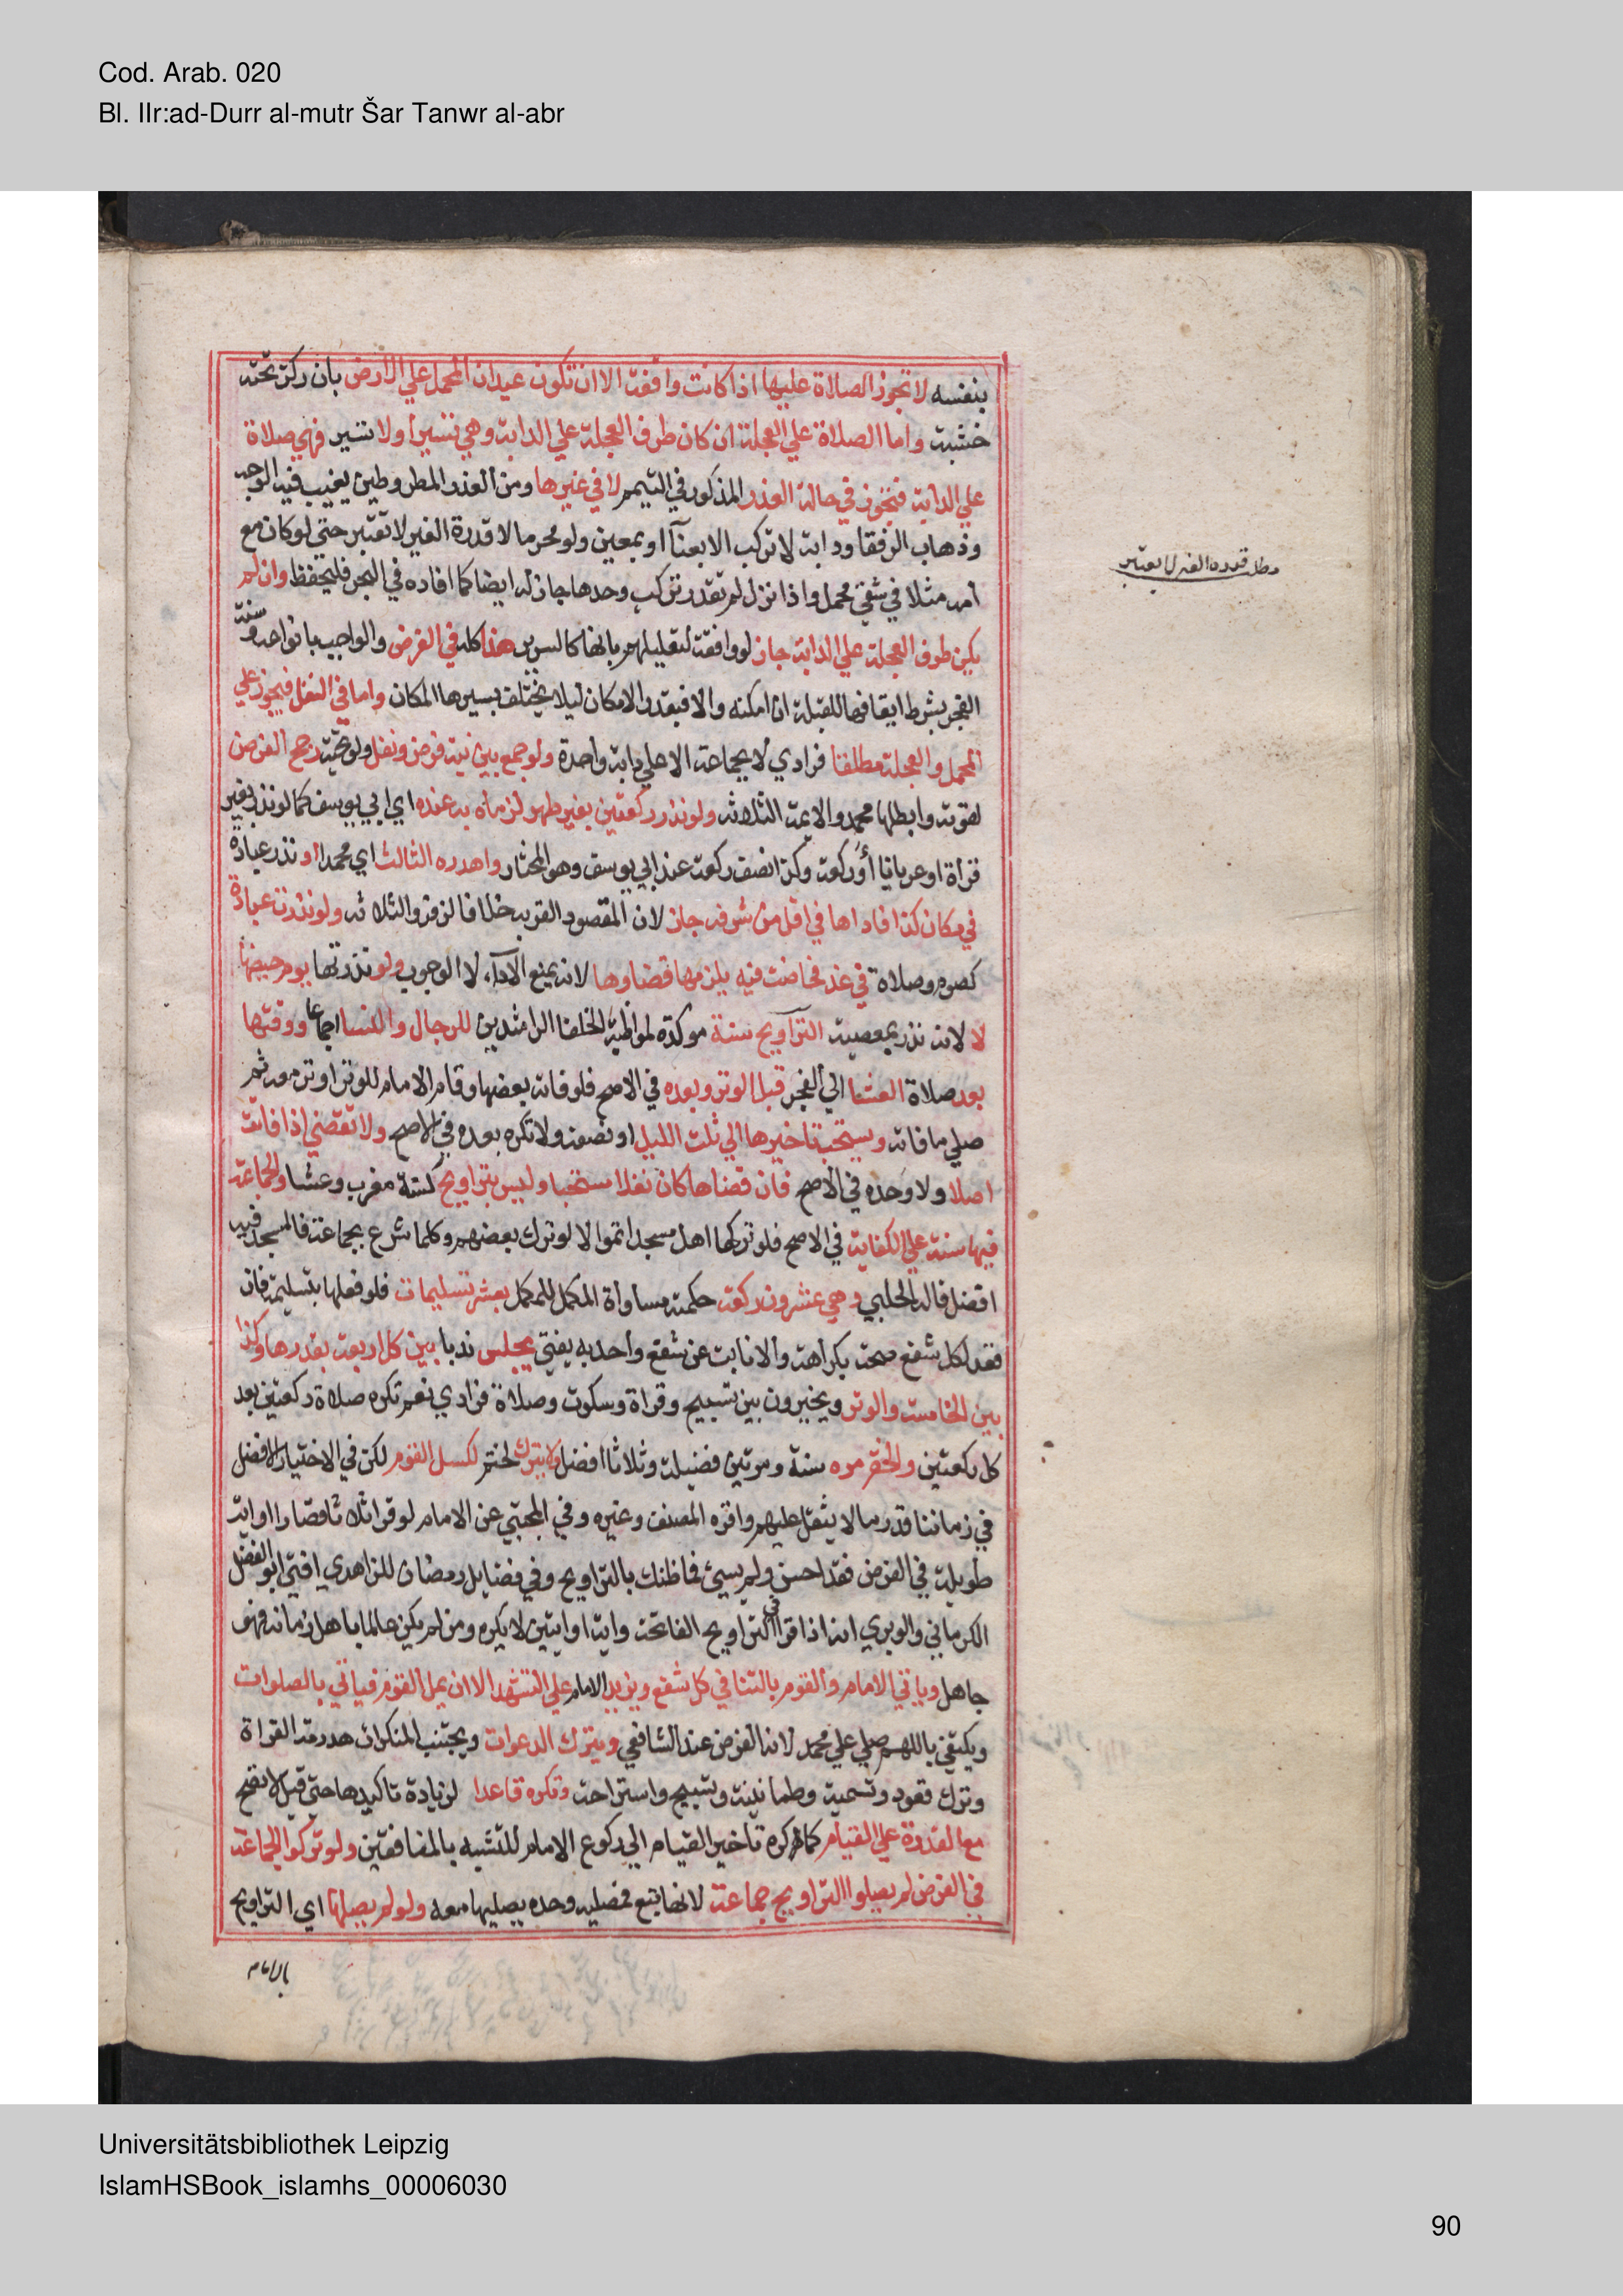 Cod. Arab. 020
Bl. IIr:ad-Durr al-mutr Šar Tanwr al-abr
بنفسه لا تجوز الصلاة عليها اذا كانت واقفة الا ان تكون عيدان المحمل علي الارض بان ركز تحته
خشبة واما الصلاة علي العجلة ان كان طرف العجلة علي الدابة وهي تسير أو لا تسير فهي صلاة
علي الدابة فتجوز في حالة العذر المذكور في التيمم لا في غيرها ومن العذر المطر وطين يغيب فيه الوجه
وذهاب الرفقا ودابة لا تركب الا بعنآ او بمعين ولو محرما لا قدرة الغير لا تعتبر حتى لو كان مع
أمه مثلا في شقي محمل واذا نزل لم تقدر تركب وحدها جاز له ايضا كما افاده في البحر فليحفظ وان لم
يكن طرف العجلة علي الدابة جاز لو واقفة لتعليلهم بانها كالسرير هذا كله في الفرض والواجب بانواعه وسنة
الفجر بشرط ايقافها للقبلة ان امكنه والا فبقدر الامكان ليلا يختلف بسيرها المكان واما في النفل فيجوز علي
المحمل والعجلة مطلقا فرادي لا بجماعة الا علي دابة واحدة ولو جمع بين نية فرض ونفل ولو تحية رجح الفرض
لقوته وابطلها محمد والايمة الثلاثه ولو نذر ركعتين بغير طهر لزماه به عنده اي ابي يوسف كما لو نذر بغير
قرأة او عريانا أو ركعة وكذا نصف ركعة عند ابي يوسف وهو المختار واهدره الثالث اي محمد او نذر عبادة
في مكان كذا فاداها في اقل من شرفه جاز لان المقصود القربه خلافا لزفر والثلاثه ولو نذرت عبادة
كصوم وصلاة في غد فحاضت فيه يلزمها قضاوها لانه يمنع الادآء لا الوجوب ولو نذرتها يوم حيضها
لا لانه نذر بمعصية التراويح سنة موكدة لمواظبة الخلفا الراشدين للرجال والنسا اجماعا ووقتها
بعد صلاة العشا الي الفجر قبل الوتر وبعده في الاصح فلو فاته بعضها وقام الامام للوتر اوتر معه ثم
صلي ما فاته ويستحب تاخيرها الي ثلث الليل او نصفه ولا تكره بعده في الاصح ولا تقضي اذا فاتت
اصلا ولا وحده في الأصح فان قضاها كان نفلا مستحبا وليس بتراويح كسنة مغرب وعشا والجماعة
فيها سنة علي الكفاية في الاصح فلو تركها اهل مسجد اثموا لا لو ترك بعضهم وكلما شرع بجماعة فالمسجد فيه
افضل قاله الحلبي وهي عشرون ركعة حكمته مساواة المكمل للمكمل بعشر تسليمات فلو فعلها بتسليمة فان
قعد لكل شفع صحت بكراهة والا نابت عن شفع واحد به يفتي يجلس ندبا بين كل اربعة بقدرها وكذا
بين الخامسة والوتر ويخيرون بين تسبيح وقراة وسكوت وصلاة فرادي نعم تكره صلاة ركعتين بعد
كل ركعتين والختم مره سنة ومرتين فضيلة وثلاثا افضل ولا يترك لختم لكسل القوم لكن في الاختيار الافضل
في زماننا قدر ما لا يثقل عليهم واقره المصنف وغيره وفي المجتبي عن الامام لو قرا ثلاثا قصارا او اية
طويلة في الفرض فقد احسن ولم يسئ فما ظنك بالتراويح وفي فضايل رمضان للزاهدي افتي ابو الفضل
الكرماني والوبري انه اذا قرا في التراويح الفاتحة واية او ايتين لا يكره ومن لم يكن عالما باهل زمانه فهو
جاهل وياتي الامام والقوم بالثنا في كل شفع ويزيد الامام علي التشهد الا ان يمل القوم فياتي بالصلوات
ويكتفي باللهم صلي علي محمد لانه الفرض عند الشافعي ويترك الدعوات ويجتنب المنكرات هدرمة القراة
وترك تعوذ وتسمية وطمانينة وتسبيح واستراحة وتكره قاعدا لزيادة تاكيدها حتى قيل لا تصح
مع القدرة علي القيام كما يكره تأخير القيام الي ركوع الامام للتشبه بالمنافقين ولو تركوا الجماعة
في الفرض لم يصلوا التراويح جماعة لانها تبع فمصليه وحده يصليها معه ولو لم يصلها اي التراويح
بالامام
مطلب قدرة الغير لا تعتبر
Universitätsbibliothek Leipzig
IslamHSBook_islamhs_00006030
90